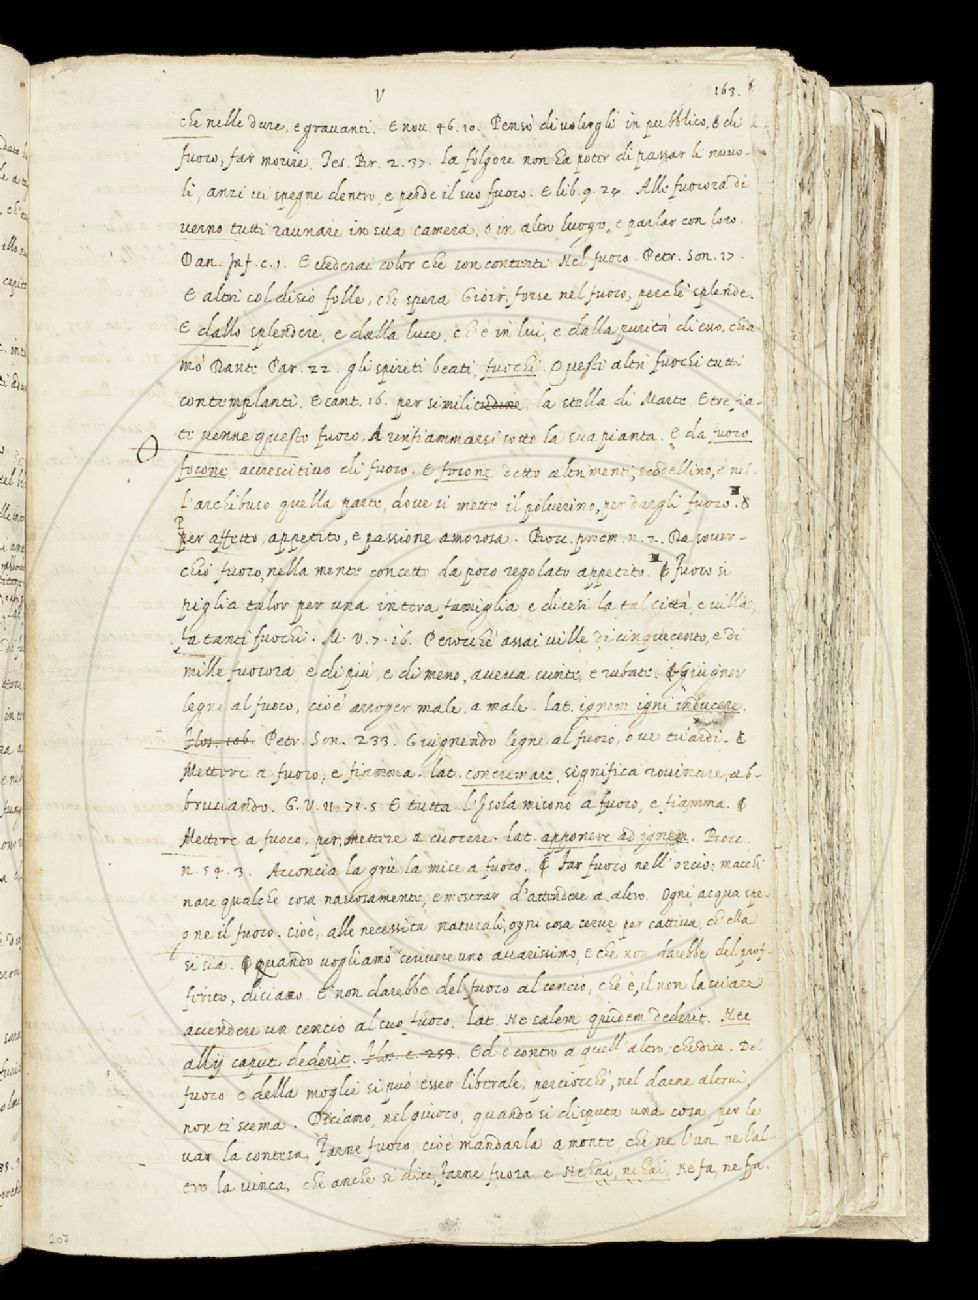 V
163.
che nelle dure, e gravanti. E nov. 46. 10. Pensò di volergli in pubblico, e di
fuoco, far morire. Tes. Br. 2. 37. la folgore non ha poter di passar li nuvo-
li, anzi vi spegne dentro, e perde il suo fuoco. E lib. 9. 24. Alle fuocora di
verno tutti raunare in sua camera, o in altro luogo, e parlar con loro.
Dan. Inf. c. 1. E vederai color che son contenti Nel fuoco. Petr. Son. 17.
E altri col disio folle, che spera Gioir, forse nel fuoco, perchè splende.
E dallo splendere, e dalla luce, ch' è in lui, e dalla purità di esso, chia
mò Dante Par. 22. gli spiriti beati, fuochi. Questi altri fuochi tutti
contemplanti. E cant. 16. per similitudine, la stella di Marte. E tre fia-
te venne questo fuoco. A rinfiammarsi sotto la sua pianta. E da fuoco
focone accrescitivo di fuoco. E focone detto altrimenti, scodellino, è nel-
l'archibuso quella parte, dove si mette il polverino, per dargli fuoco. E
per affetto, appetito, e passione amorosa. Bocc. proem. n. 2. Da sover-
chio fuoco, nella mente concetto da poco regolato appetito. E fuoco si
piglia talor per una intera famiglia e dicesi la tal città, e villa
fa tanti fuochi. M. V. 7. 16. Perocchè assai ville di cinquecento, e di
mille fuocora e di più, e di meno, aveva vinte, e rubate. E Giugner
legne al fuoco, cioè arroger male a male. Lat. ignem igni inducere.
Flos. 106. Petr. Son. 233. Giugnendo legne al fuoco, ove tu ardi. E
Mettere a fuoco, e fiamma. lat. concremare, significa rovinare, ab-
bruciando. G. V. 11. 71. 5 E tutta l'Isola misono a fuoco, e fiamma. E
Mettere a fuoco, per, mettere a cuocere. lat. apponere ad ignem. Bocc.
n. 54. 3. Acconcia la grù la mise a fuoco. E Far fuoco nell' orcio: macchi
nare qualche cosa nascosamente, e mostrar d'attendere a altro. Ogni acqua spe-
gne il fuoco. cioè, alle necessità naturali, ogni cosa serve per cattiva, ch' ella
si sia. E quando vogliamo scrivere uno avarissimo, e che non darebbe del prof-
ferito, diciamo. E' non darebbe del fuoco al cencio, che è, il non lasciare
accendere un cencio al suo fuoco. Lat. Ne salem quidem dederit. Nec
allij caput dederit. Flos. c. 258. Ed è contro a quell' altro, che dice. Del
fuoco e della moglie si può esser liberale: perciocchè, nel darne altrui,
non ti scema. Diciamo, nel giuoco, quando si disputa una cosa per le
var la contesa, Farne fuoco, cioè mandarla a monte, che ne l'un, ne l'al-
tro la vinca, che anche si dice, Farne fuora e Ne hai, ne hai, Ne fa, ne fa.
107